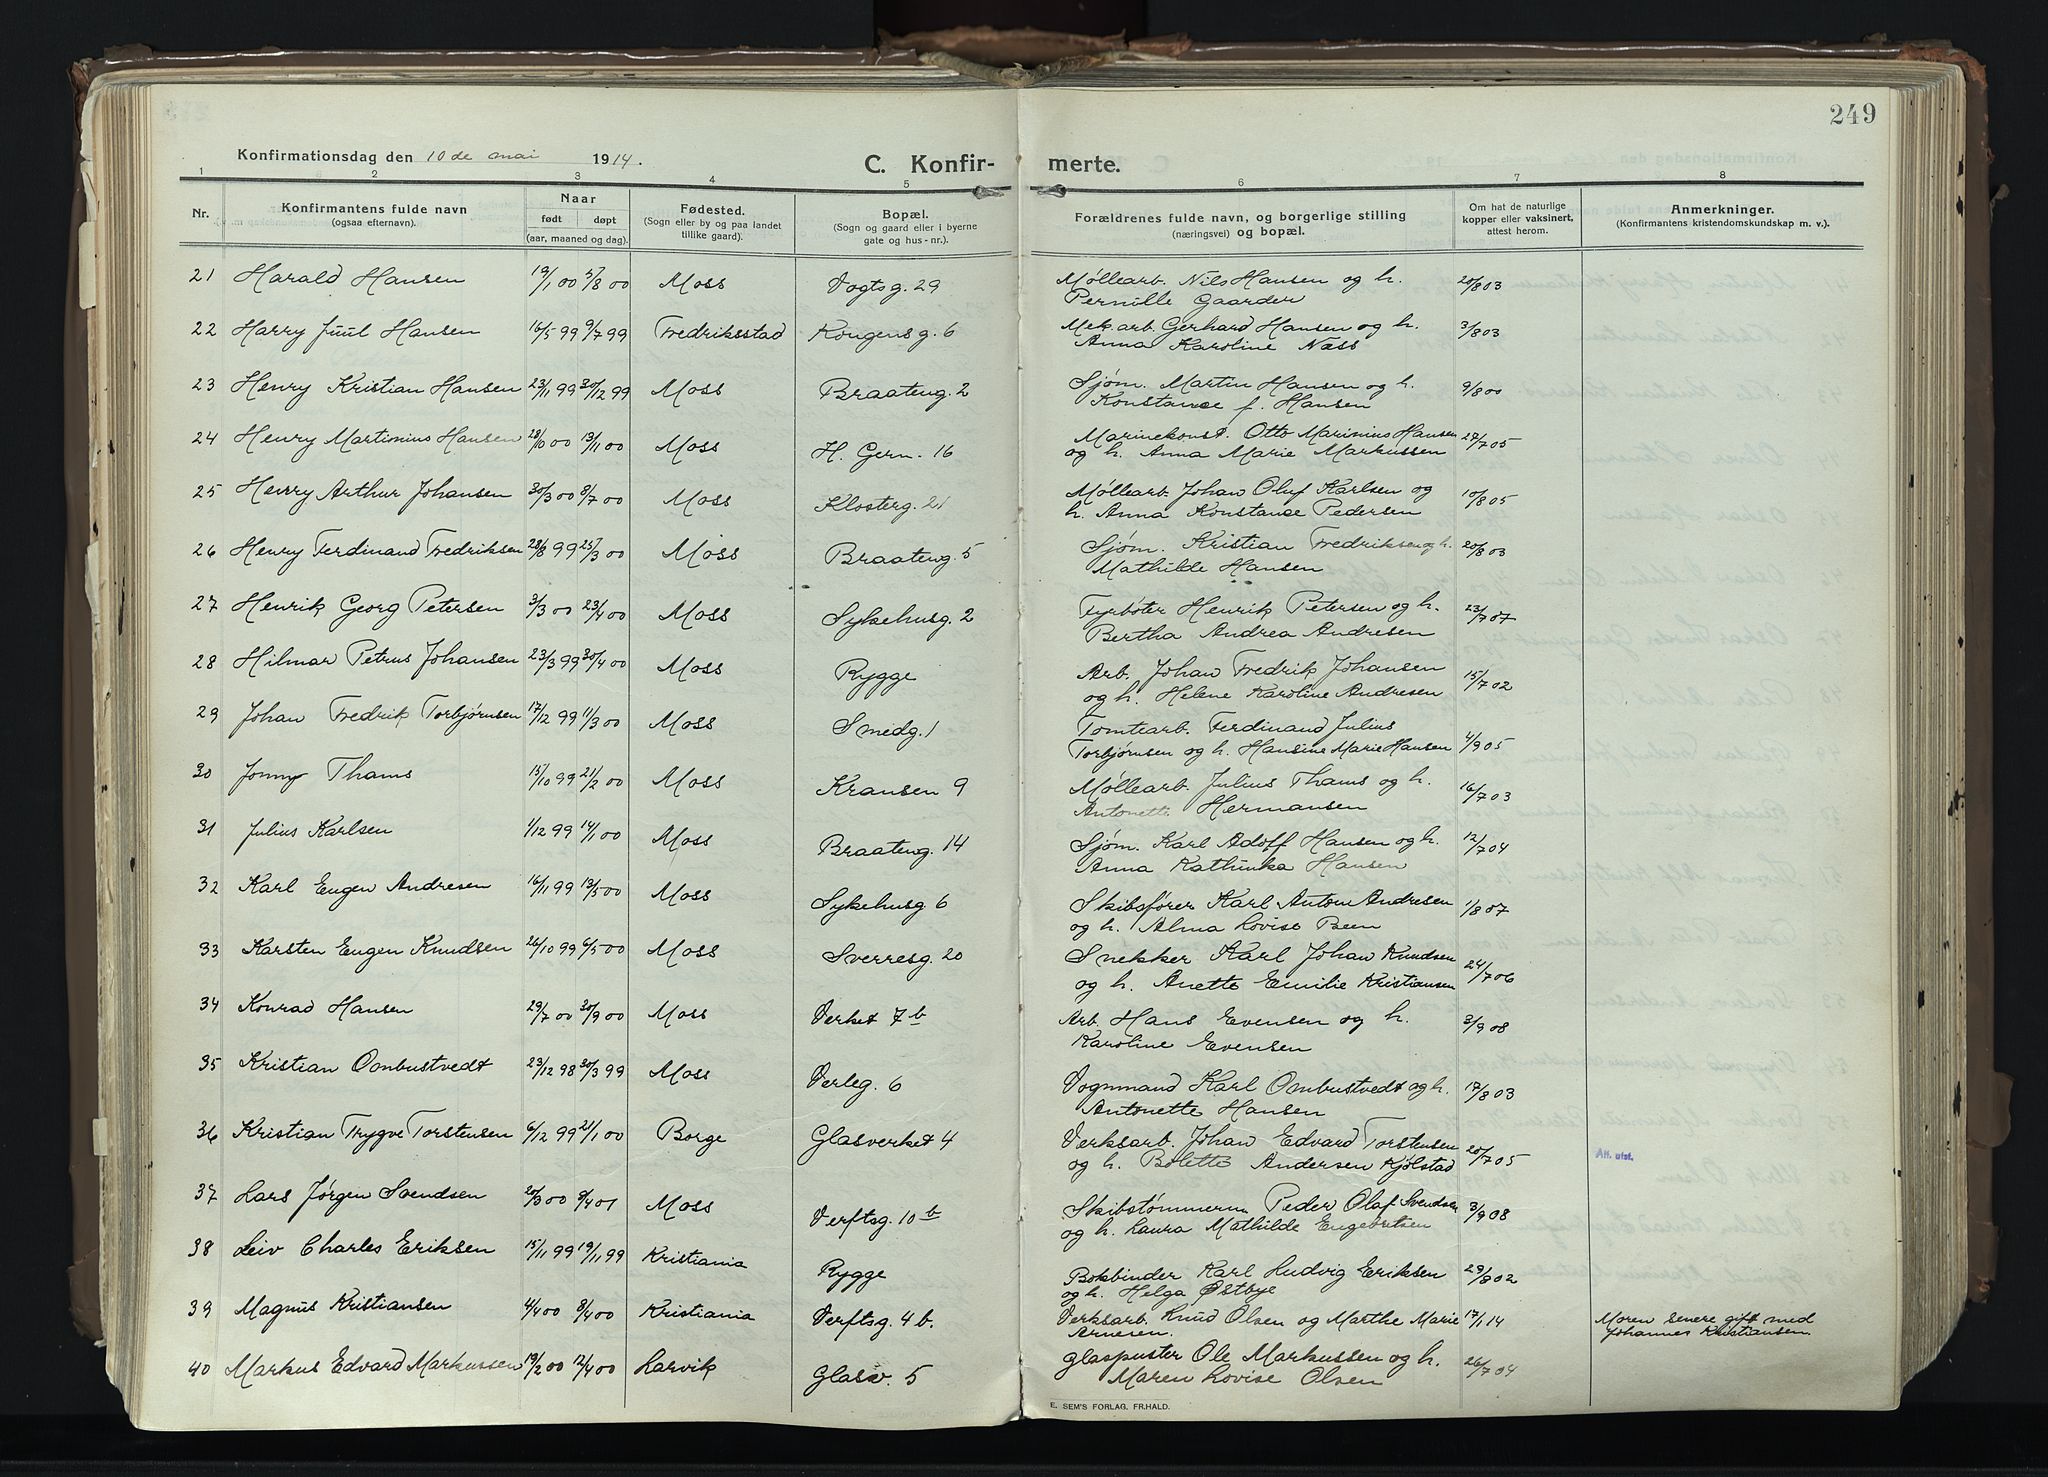 249
Konfirmationsdag den 10de mai 1914.
C. Konfir- merte.
1 2 3 4 5 6 7 8
Nr.
Konfirmantens fulde navn
(ogsaa efternavn).
Naar
født døpt
(aar, maaned og dag).
Fødested.
(Sogn eller by og paa landet
tillike gaard).
Bopæl.
(Sogn og gaard eller i byerne
gate og hus-nr.).
Forældrenes fulde navn, og borgerlige stilling
(næringsvei) og bopæl.
Om hat de naturlige
kopper eller vaksinert,
attest herom.
Anmerkninger.
(Konfirmantens kristendomskundskap m. v.).
21 Harald Hansen 19/1 00 5/8 00 Moss Vogtsg. 29 Møllearb. Nils Hansen og h. 20/8 03
Pernille Gaarder
22 Harry Juul Hansen 16/5 99 9/7 99 Fredriksstad Kongensg. 6 Mek. arb. Gerhard Hansen og h. 3/8 03
Anna Karoline Næss
23 Henry Kristian Hansen 23/11 99 30/12 99 Moss Braateng. 2 Sjøm. Martin Hansen og h. 9/8 00
Konstanse f. Hansen
24 Henry Martinius Hansen 28/10 00 13/11 00 Moss H. Gern. 16 Marinekonst. Otto Marinius Hansen 27/7 05
og h. Anna Marie Markussen
25 Henry Arthur Johansen 30/3 00 8/7 00 Moss Klosterg. 21 Møllearb. Johan Oluf Karlsen og 10/8 05
h. Anna Konstanse Pedersen
26 Henry Ferdinand Fredriksen 28/8 99 25/3 00 Moss Braateng. 5 Sjøm. Kristian Fredriksen og h. 20/8 03
Mathilde Hansen
27 Henrik Georg Petersen 3/3 00 23/4 00 Moss Sykehusg. 2 Fyrbøter Henrik Petersen og h. 23/7 07
Bertha Andrea Andresen
28 Hilmar Petrus Johansen 23/3 99 30/4 00 Moss Rygge Arb. Johan Fredrik Johansen 15/7 02
og h. Helene Karoline Andresen
29 Johan Fredrik Torbjørnsen 17/12 99 11/3 00 Moss Smedg. 1 Tomtearb. Ferdinand Julius
Torbjørnsen og h. Hansine Marie Hansen 4/9 05
30 Jonny Thams 15/10 99 21/2 00 Moss Kransen 9 Møllearb. Julius Thams og h. 16/7 03
Antonette Hermansen
31 Julius Karlsen 1/12 99 14/1 00 Moss Braateng. 14 Sjøm. Karl Adolf Hansen og h. 12/7 04
Anna Kathinka Hansen
32 Karl Eugen Andresen 16/11 99 13/5 00 Moss Sykehusg 6 Skibsfører Karl Anton Andresen 1/8 07
og h. Alma Lovise Been
33 Karsten Eugen Knudsen 26/10 99 6/5 00 Moss Sverresg. 20 Snekker Karl Johan Knudsen 24/7 06
og h. Anette Emilie Kristiansen
34 Konrad Hansen 29/7 00 30/9 00 Moss Verket 7b Arb. Hans Evensen og h. 3/9 08
Karoline Evensen
35 Kristian Ombustvedt 23/12 98 30/3 99 Moss Verleg. 6 Vognmand Karl Ombustvedt og h. 17/8 03
Antonette Hansen
36 Kristian Trygve Torstensen 6/12 99 21/1 00 Borge Glasverket 4 Verksarb. Johan Edvard Torstensen 20/7 05 Att. utst.
og h. Bolette Andersen Kjølstad
37 Lars Jørgen Svendsen 20/3 00 8/4 01 Moss Verftsg. 10b Skibstømmerm Peder Olaf Svendsen 3/9 08
og h. Laura Mathilde Engebretsen
38 Leiv Charles Eriksen 15/11 99 19/11 99 Kristiania Rygge Bokbinder Karl Ludvig Eriksen 29/8 02
og h. Helga Østbye
39 Magnus Kristiansen 4/4 00 8/4 00 Kristiania Verftsg. 4b. Verksarb. Knud Olsen og Marthe Marie 17/1 14 Moren senere gift med
Arnesen. Johannes Kristiansen
40 Markus Edvard Markussen 19/2 00 12/4 00 Larvik Glasv. 5 Glaspuster Ole Markussen og h. 26/7 04
Maren Lovise Olsen
E. SEM'S FORLAG. FR.HALD.